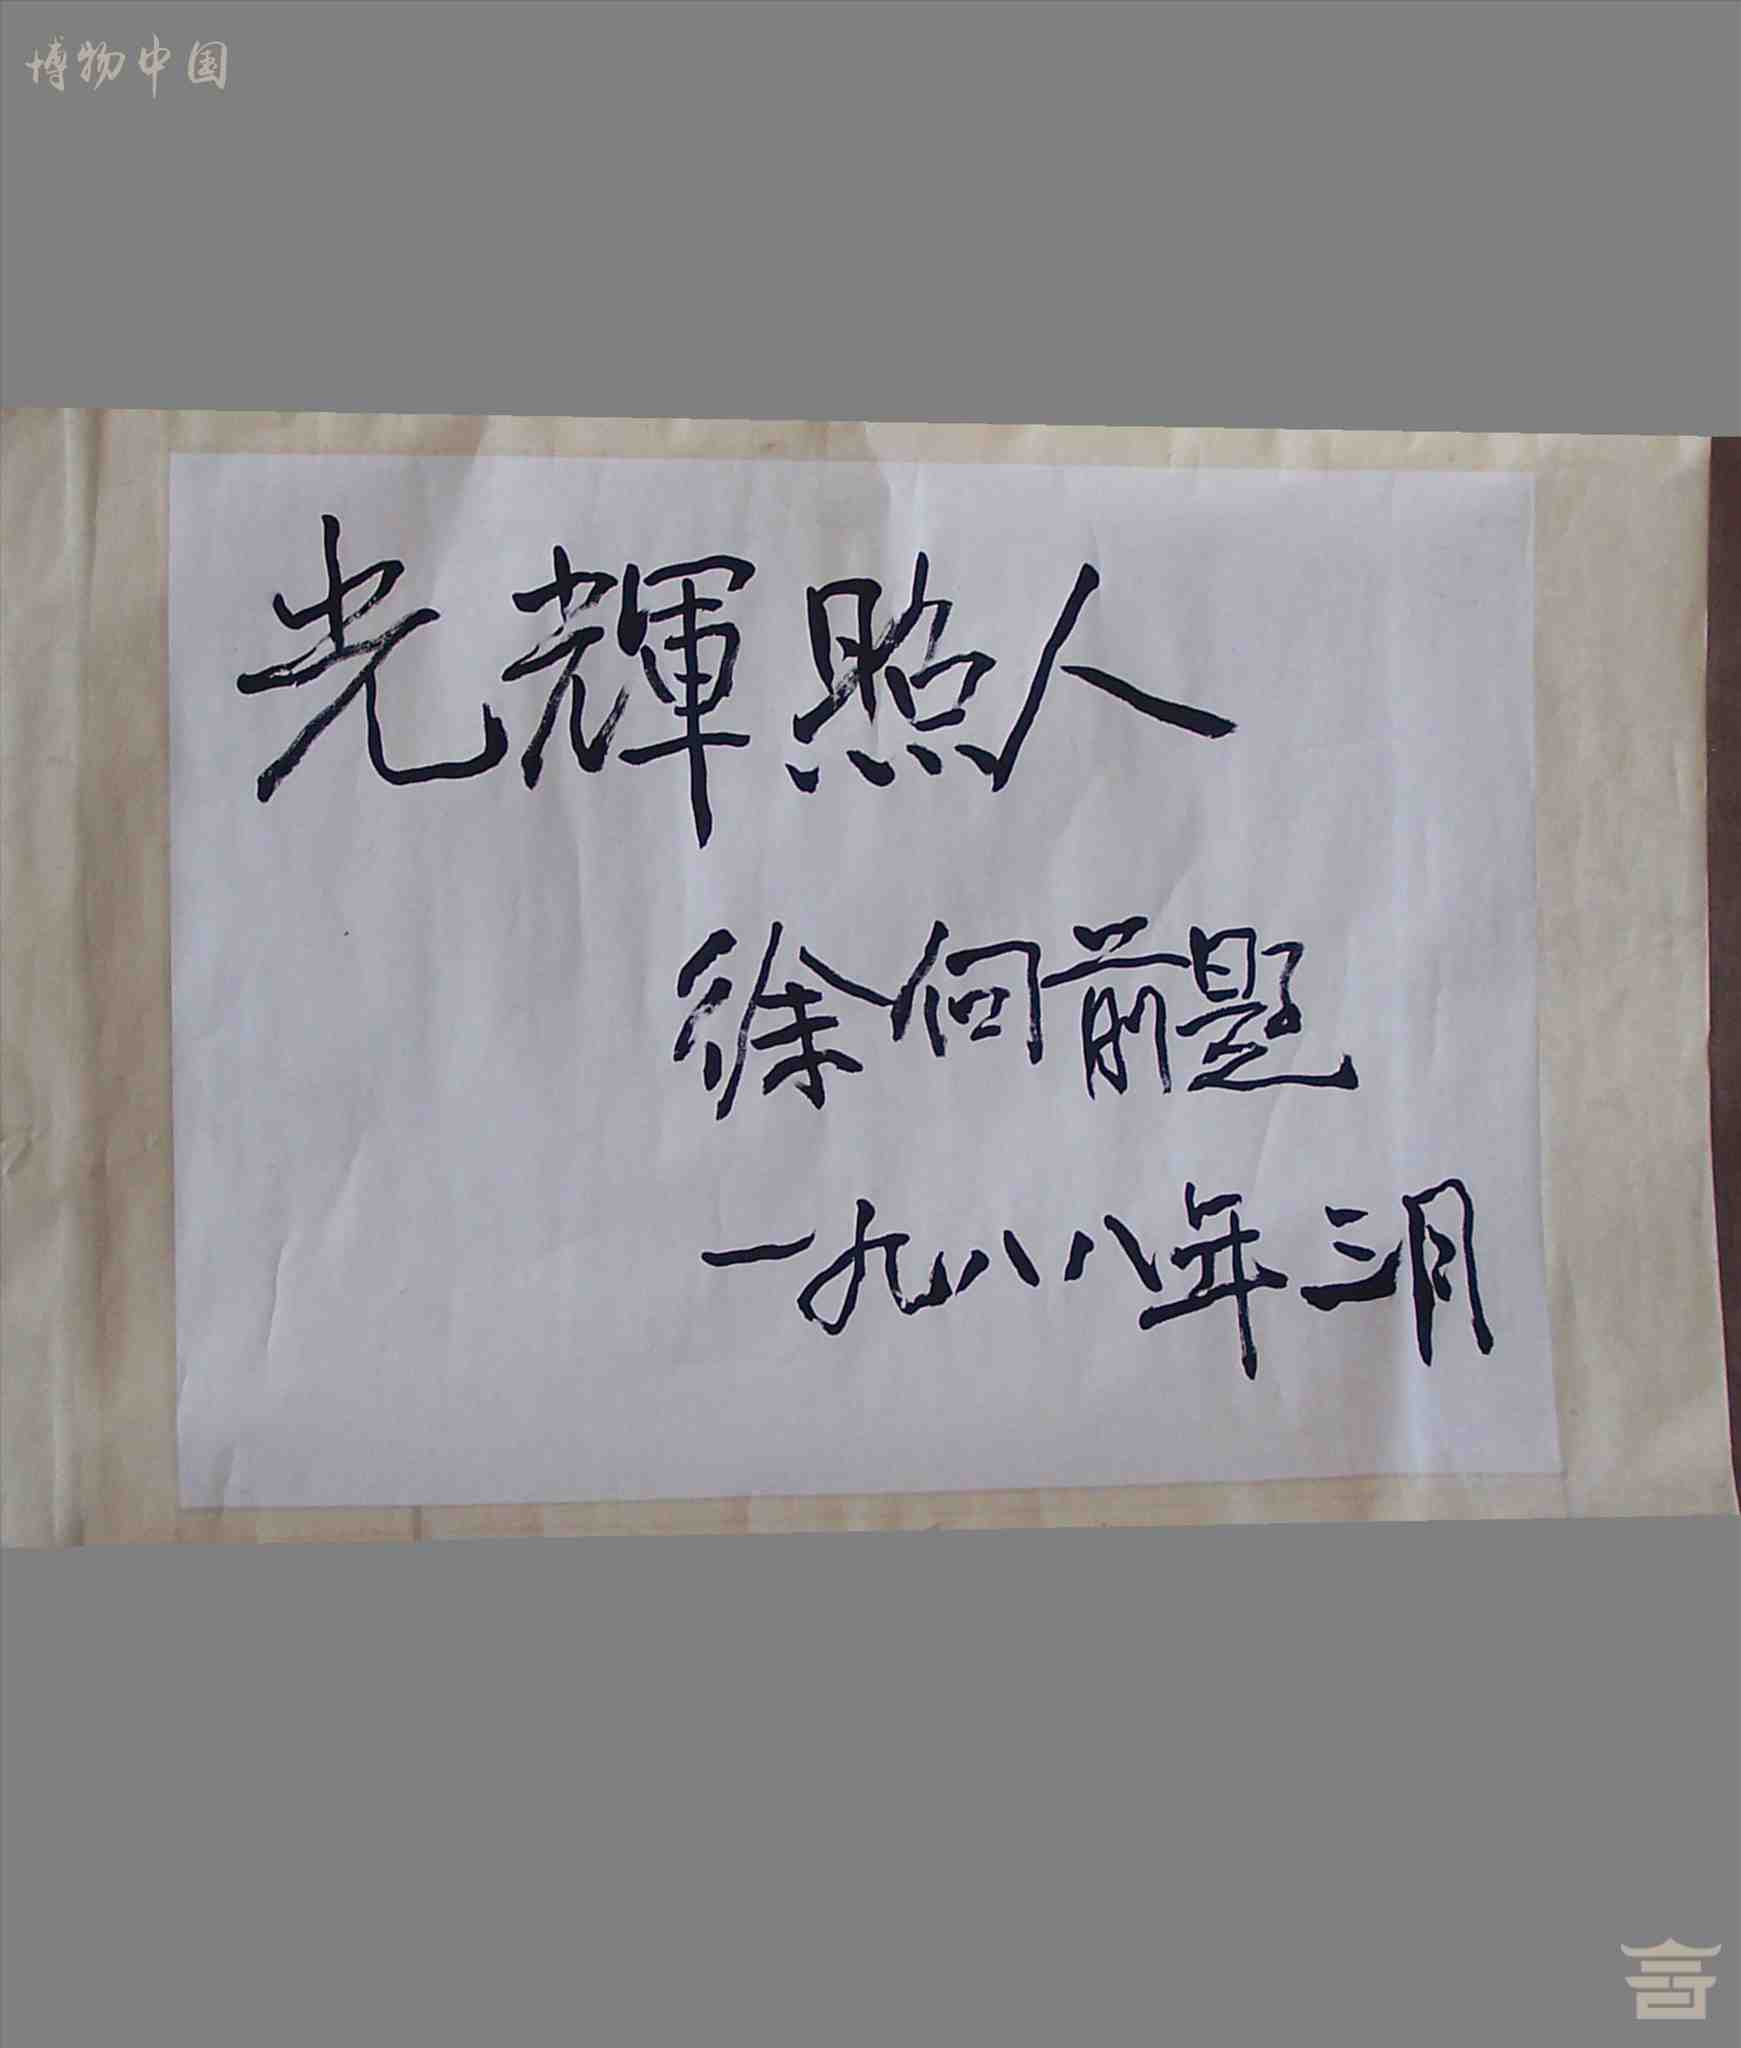 博物中国
光輝照人
徐向前题
一九八八年三月